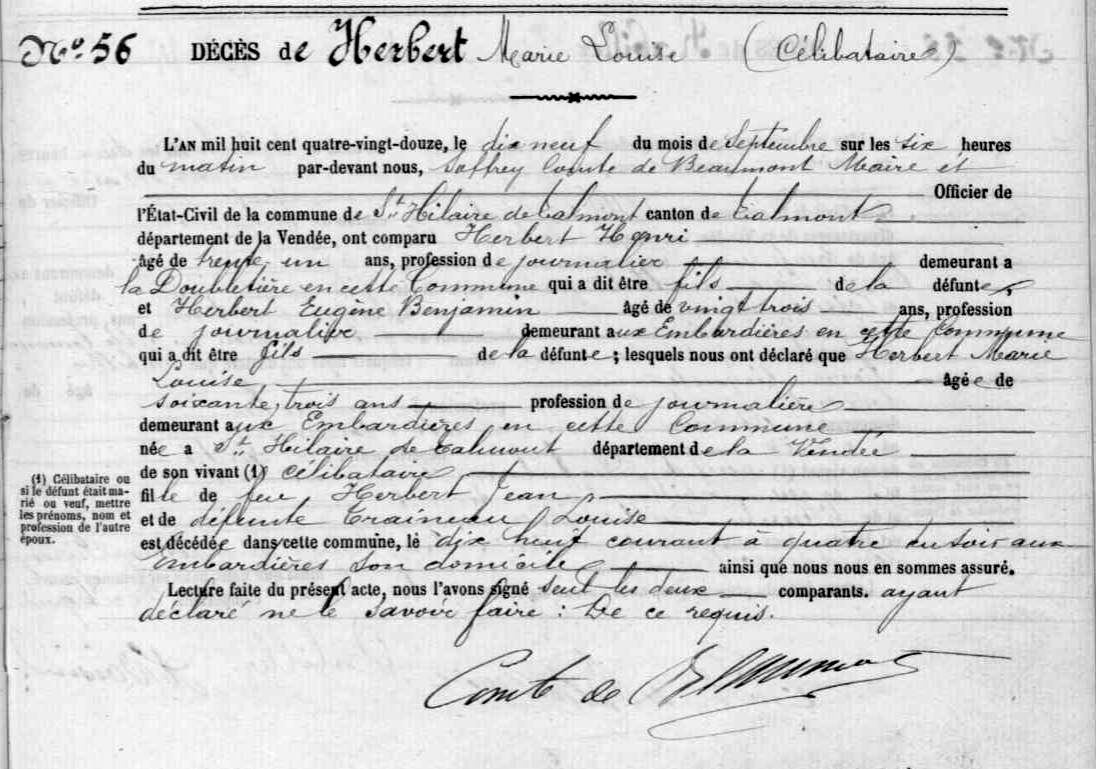 N.o 56 DÉCÈS de Herbert Marie Louise (Célibataire)
L'AN mil huit cent quatre-vingt-douze, le dix neuf du mois de Septembre sur les six heures
du matin par-devant nous, Saffrey Comte de Beaumont Maire et
Officier de
l'État-Civil de la commune de St Hilaire de Talmont canton de Talmont
département de la Vendée, ont comparu Herbert Henri
âgé de trente un ans, profession de journalier demeurant a
la Doubletière en cette Commune qui a dit être fils de la défunte,
et Herbert Eugène Benjamin âgé de vingt trois ans, profession
de journalier demeurant aux Embardières en cette Commune
qui a dit être fils de la défunte ; lesquels nous ont déclaré que Herbert Marie
Louise âgée de
soixante trois ans profession de journalière
demeurant aux Embardières en cette Commune
née a St. Hilaire de Talmont département de la Vendée
de son vivant (1) célibataire
fille de feu Herbert Jean
et de défunte Traineau Louise
est décédée dans cette commune, le dix neuf courant à quatre du soir aux
Embardières son domicile ainsi que nous nous en sommes assuré.
Lecture faite du présent acte, nous l'avons signé seul les deux comparants. ayant
déclaré ne le savoir faire : De ce requis.
Comte de Beaumont
(1) Célibataire ou
si le défunt était ma-
rié ou veuf, mettre
les prénoms, nom et
profession de l'autre
époux.